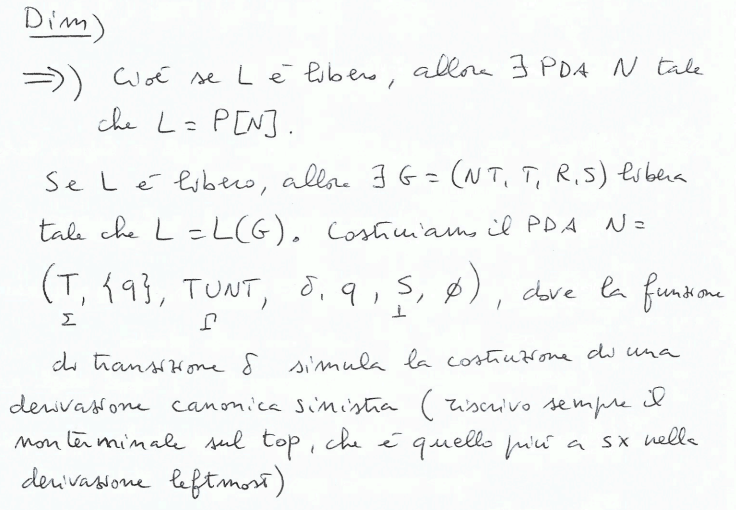 Dim)
⇒) Cioè se L è libero, allora ∃ PDA N tale
che L = P[N].
Se L è libero, allora ∃ G = (NT, T, R, S) libera
tale che L = L(G). Costruiamo il PDA N =
(T, {q}, T∪NT, δ, q, S, ∅), dove la funzione
Σ Γ ⊥
di transizione δ simula la costruzione di una
derivazione canonica sinistra (riscrivo sempre il
nonterminale sul top, che è quello più a sx nella
derivazione leftmost)